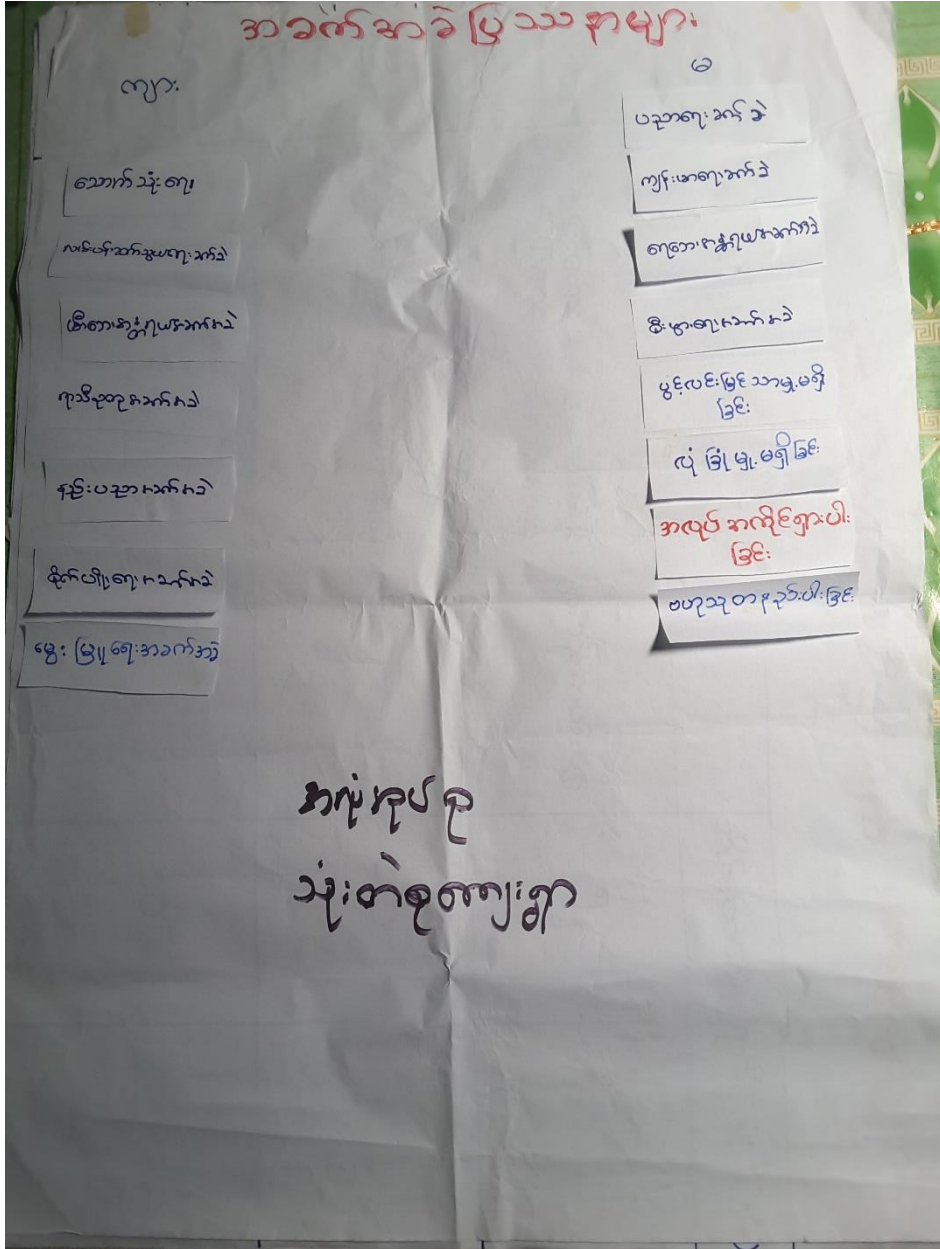 အခက်အခဲပြဿနာများ
ကျား
မ
သောက်သုံးရေ
လမ်းပန်းဆက်သွယ်ရေးခက်ခဲ
မီးဘေးအန္တရာယ်အခက်အခဲ
ရာသီဥတုအခက်အခဲ
နည်းပညာအခက်အခဲ
စိုက်ပျိုးရေးအခက်အခဲ
မွေးမြူရေးအခက်အခဲ
ပညာရေးခက်ခဲ
ကျန်းမာရေးခက်ခဲ
ရေဘေးအန္တရာယ်အခက်အခဲ
စီးပွားရေးအခက်အခဲ
ပွင့်လင်းမြင်သာမှု့မရှိ
ခြင်း
လုံခြုံမှု့မရှိခြင်း
အလုပ်အကိုင်ရှားပါး
ခြင်း
ဗဟုသုတနည်းပါးခြင်း
သုံးတဲစုကျေးရွာ